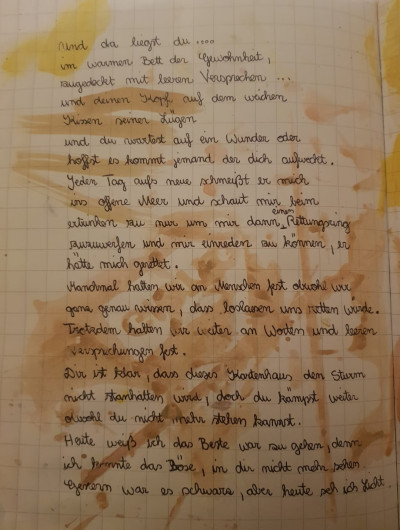 und da liegst du ....
im warmen Bett der Gewohnheit,
zugedeckt mit leeren Versprechen ...
und deinen Kopf auf dem weichen
Kissen seiner Lügen
und du wartest auf ein Wunder oder
hoffst es kommt jemand der dich aufweckt.
Jeden Tag aufs neue schmeißt er mich
ins offene Meer und schaut mir beim
ertrinken zu nur um mir dann einen Rettungsring
zuzuwerfen und mir einreden zu können, er
hätte mich gerettet.
Manchmal halten wir an Menschen fest obwohl wir
ganz genau wissen, dass loslassen uns retten würde.
Trotzdem halten wir weiter an Worten und leeren
Versprechungen fest.
Dir ist klar, dass dieses Kartenhaus den Sturm
nicht standhalten wird, doch du kämpst weiter
obwohl du nicht mehr stehen kannst.
Heute weiß ich das Beste war zu gehen, denn
ich konnte das Böse, in dir nicht mehr sehen.
Gestern war es schwarz, aber heute seh ich Licht.